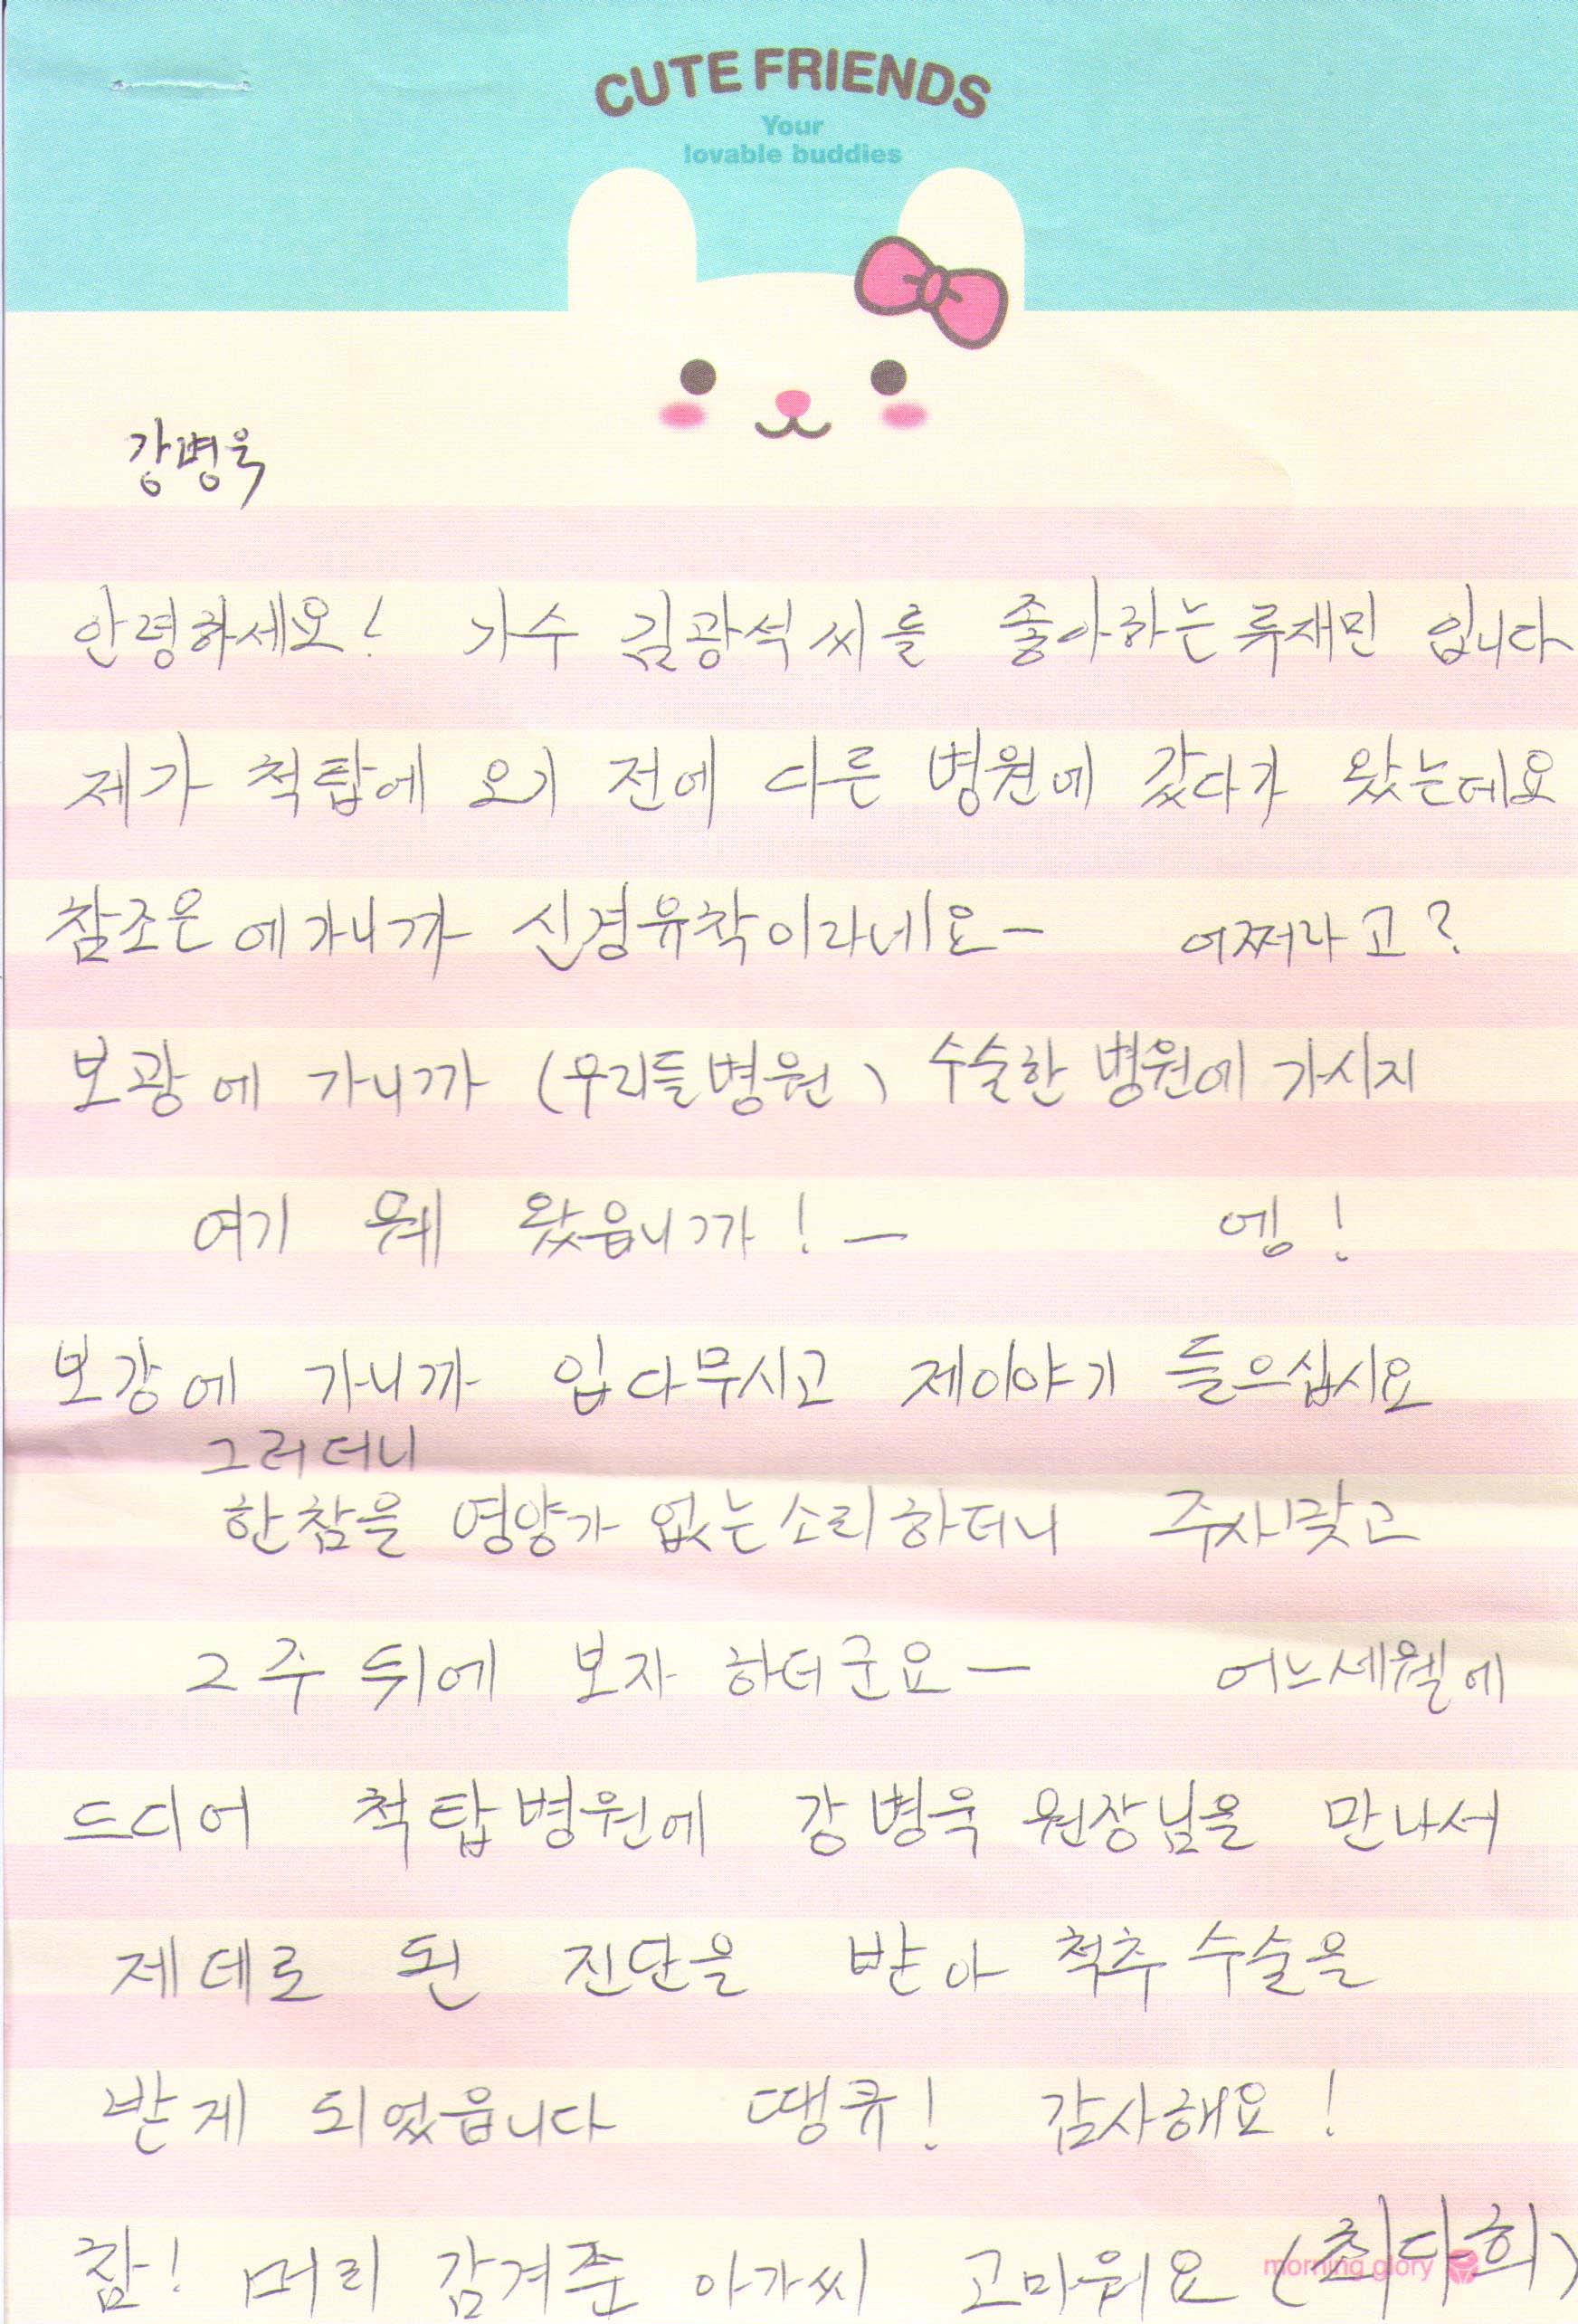 CUTE FRIENDS
Your
lovable buddies
강병욱
안령하세요! 가수 김광석씨를 좋아하는 류재민 입니다
제가 척탑에 오기 전에 다른 병원에 갔다가 왔는데요
참조은에가니까 신경유착이라네요- 어쩌라고?
보광에 가니까 (우리들병원) 수술한 병원에 가시지
여기 뭐 왔읍니까!- 엥!
보강에 가니까 입다무시고 제이야기 들으십시요
그러더니
한참을 영양가 없는소리하더니 주사맞고
2주 뒤에 보자 하더군요- 어느세웰에
드디어 척탑병원에 강병욱 원장님을 만나서
제데로 된 진단을 받아 척추 수술을
받게 되었읍니다 땡큐! 감사해요!
참! 머리 감겨준 아가씨 고마워요 (최다희)
morning glory